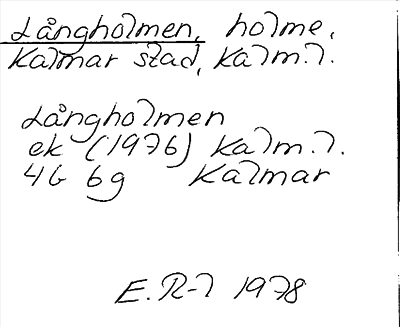 Långholmen, holme,
Kalmar stad, Kalm.l.
Långholmen
ek (1976) Kalm.l.
4G 6g Kalmar
E.R-l 1978